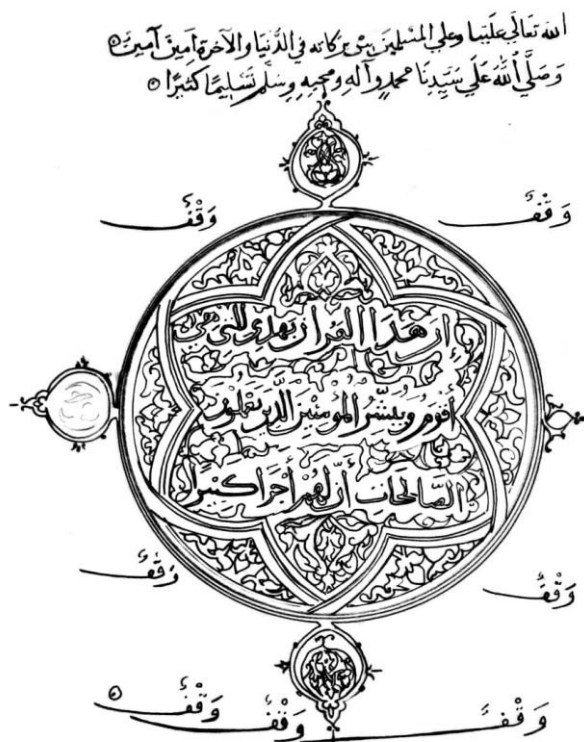 الله تعَالَي علَينا وعلي المسلمينَ من بركاته في الدُّنيَا والآخرة آمِينَ آمِينَ
وَصَلَّي اللهُ عَلَي سَيِّدِنَا محمدٍ وآلهِ وصحبِهِ وسلَّم تَسْلِيمًا كثيرًا
وَقْفٌ وَقْفٌ
ان هذا القرآن يهدي للتي هي
أقوم ويبشّر المؤمنين الذين يعملون
الصالحات أنّ لهم أجرا كبيرا
وَقْفٌ وَقْفٌ
وَقْفٌ وَقْفٌ وَقْفٌ